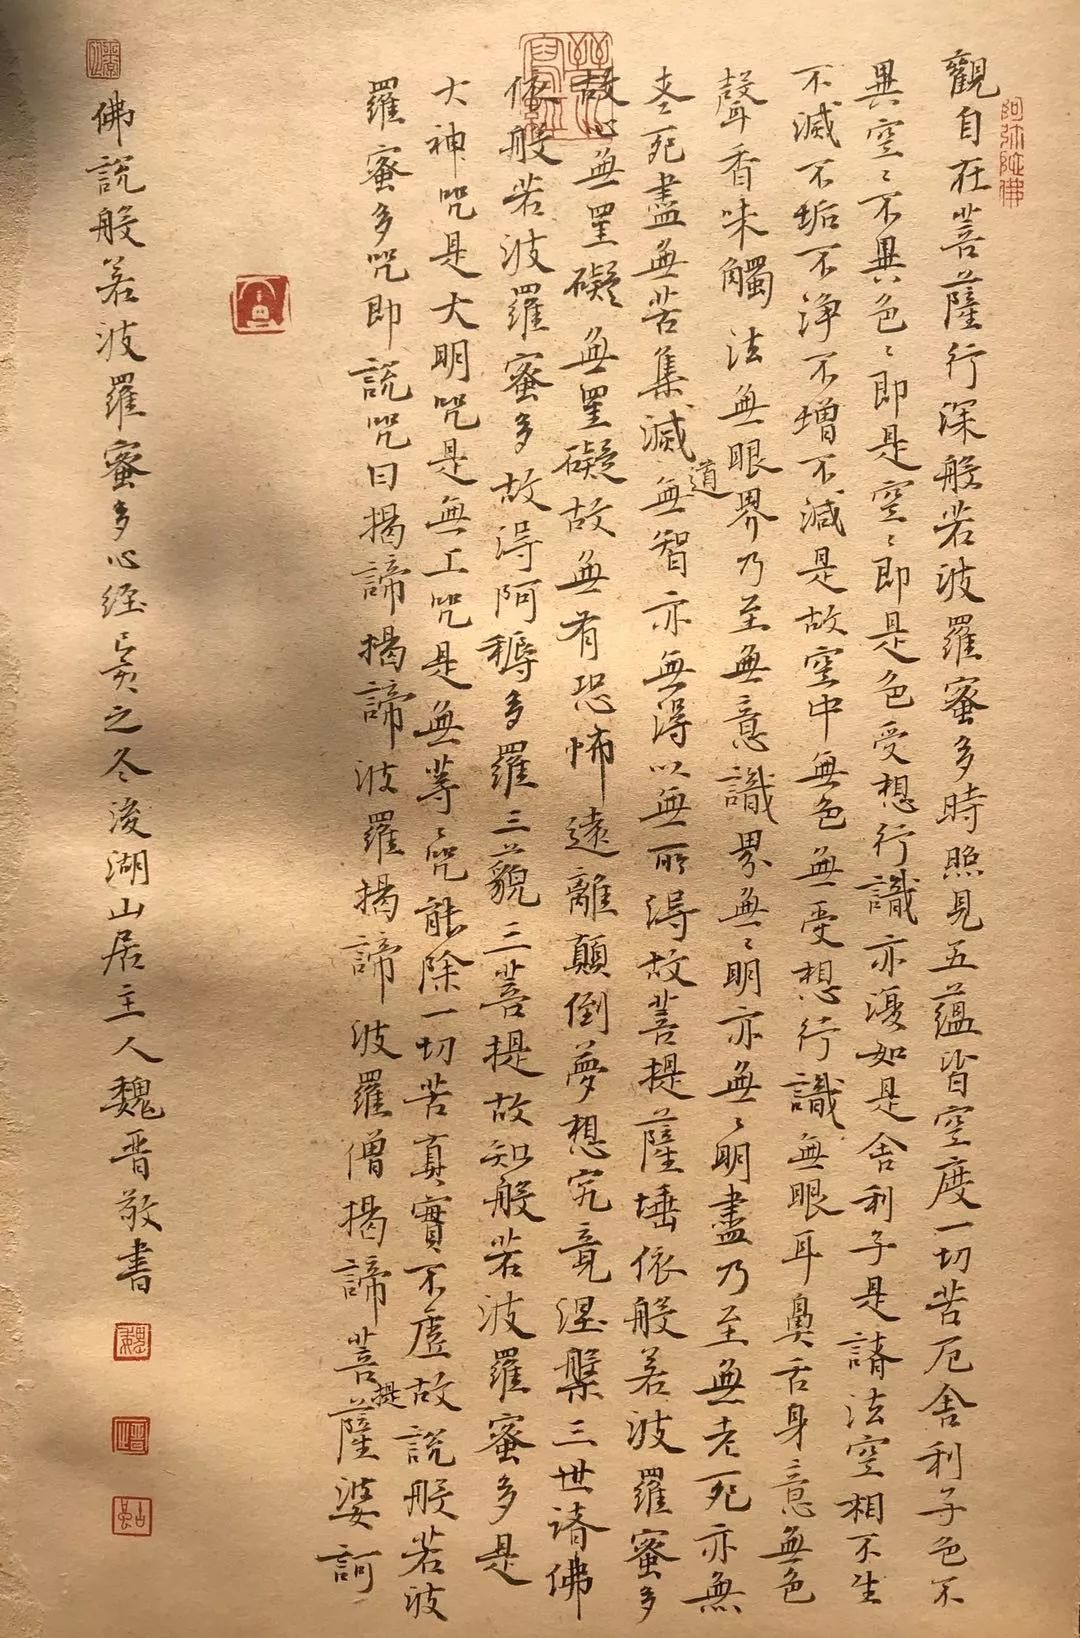 阿弥陀佛
觀自在菩薩行深般若波羅蜜多時照見五蘊皆空度一切苦厄舍利子色不
異空〻不異色〻即是空〻即是色受想行識亦復如是舍利子是諸法空相不生
不滅不垢不淨不增不減是故空中無色無受想行識無眼耳鼻舌身意無色
聲香味觸法無眼界乃至無意識界無〻明亦無〻明盡乃至無老死亦無
老死盡無苦集滅道無智亦無得以無所得故菩提薩埵依般若波羅蜜多
故心無罣礙無罣礙故無有恐怖遠離顛倒夢想究竟涅槃三世諸佛
依般若波羅蜜多故得阿耨多羅三藐三菩提故知般若波羅蜜多是
大神咒是大明咒是無上咒是無等〻咒能除一切苦真實不虛故說般若波
羅蜜多咒即說咒曰揭諦揭諦波羅揭諦波羅僧揭諦菩提薩婆訶
佛說般若波羅蜜多心經之冬後湖山居主人魏晋敬書
魏
晋